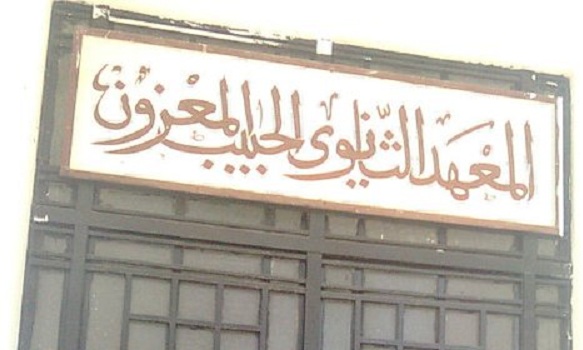 المعهد الثانوي الحبيب المعزون